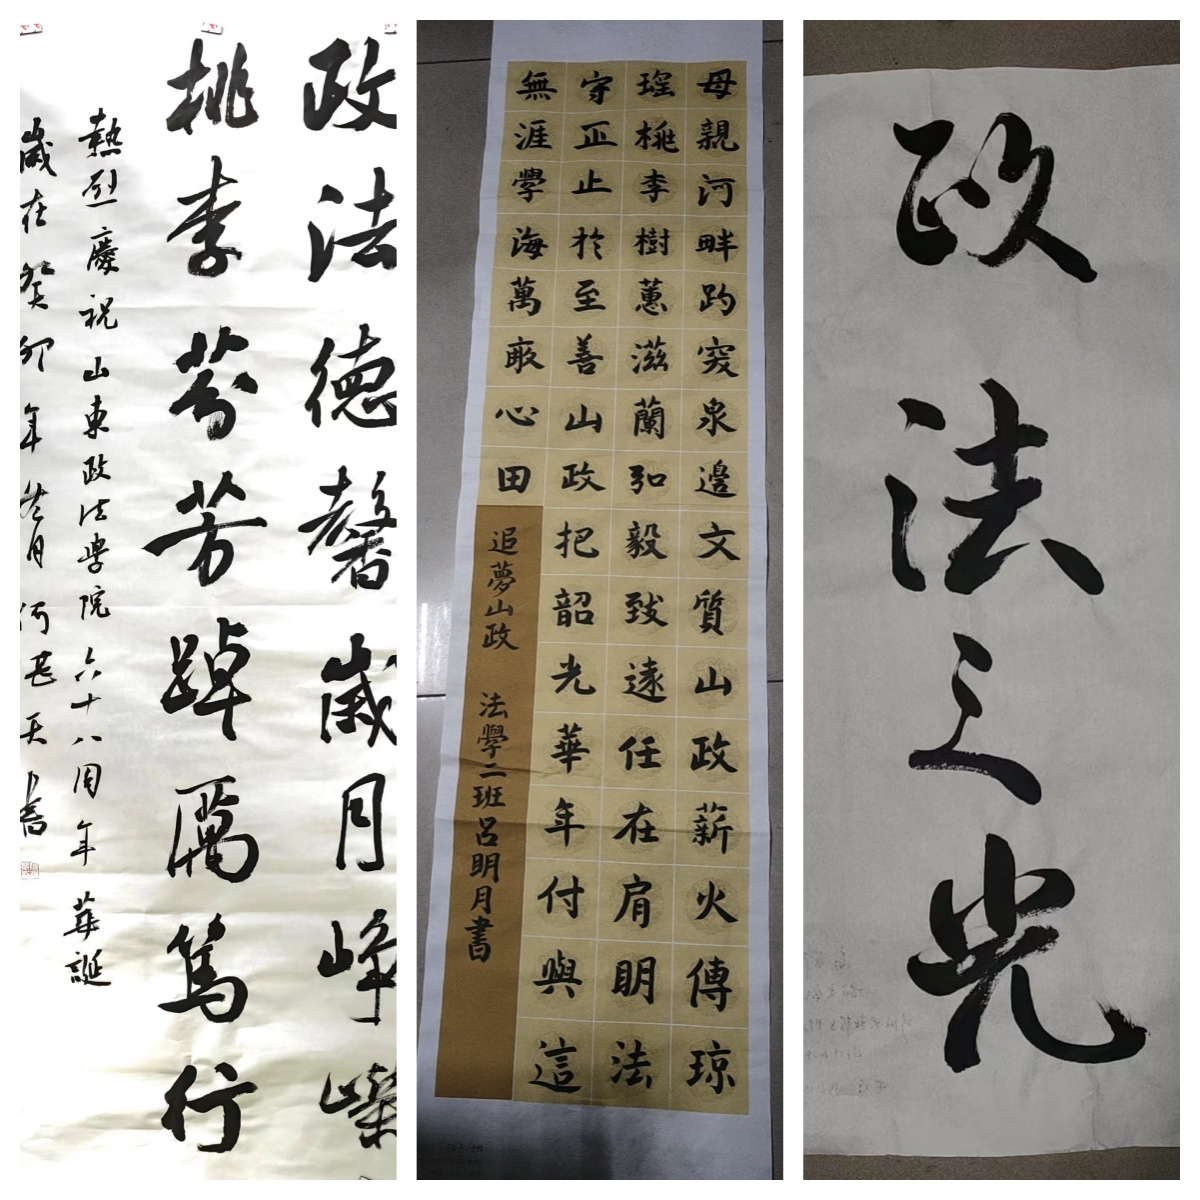 政法德馨歲月峥嶸
桃李芬芳踔厲篤行
熱烈慶祝山東政法學院六十八周年華誕
歲在癸卯年月何天書
母親河畔趵突泉邊文質山政薪火傳琼
瑤桃李樹蕙滋蘭弘毅致遠任在肩明法
守正止於至善山政把韶光華年付與這
無涯學海萬畝心田
追夢山政 法學二班呂明月書
政法之光